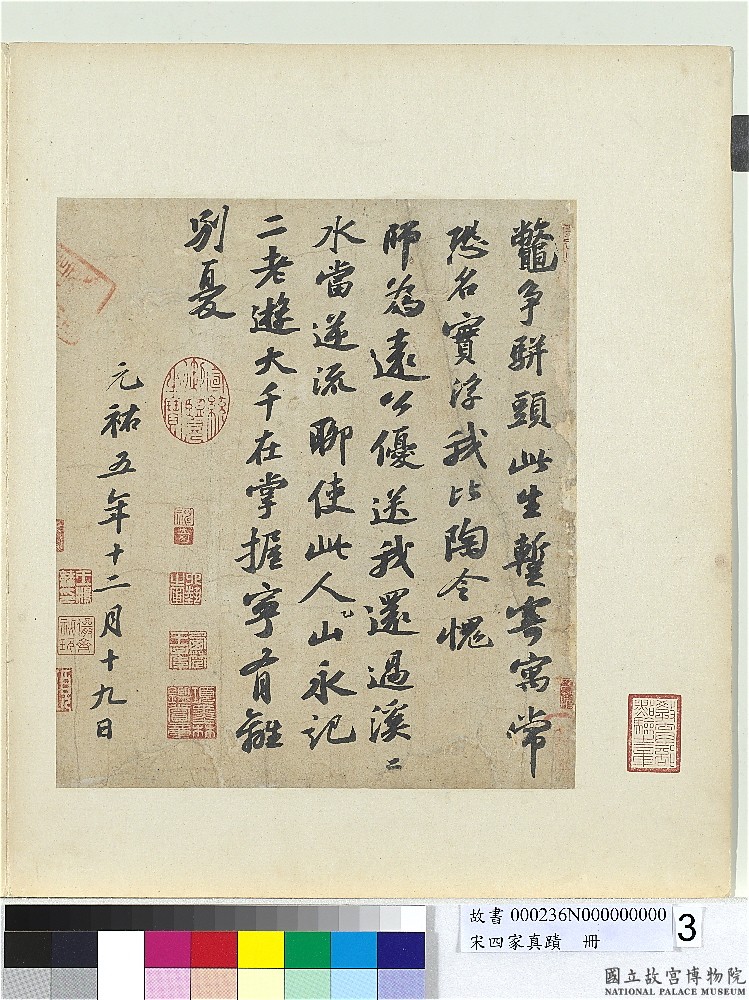 鼈爭駢頭此生蹔寄寓常
恐名實浮我比陶令愧
師為遠公優送我還過溪二
水當逆流聊使此人山永記
二老遊大千在掌握寧有離
別憂
元祐五年十二月十九日
故書 000236N000000000
宋四家真蹟 冊
3
國立故宮博物院
NATIONAL PALACE MUSEUM